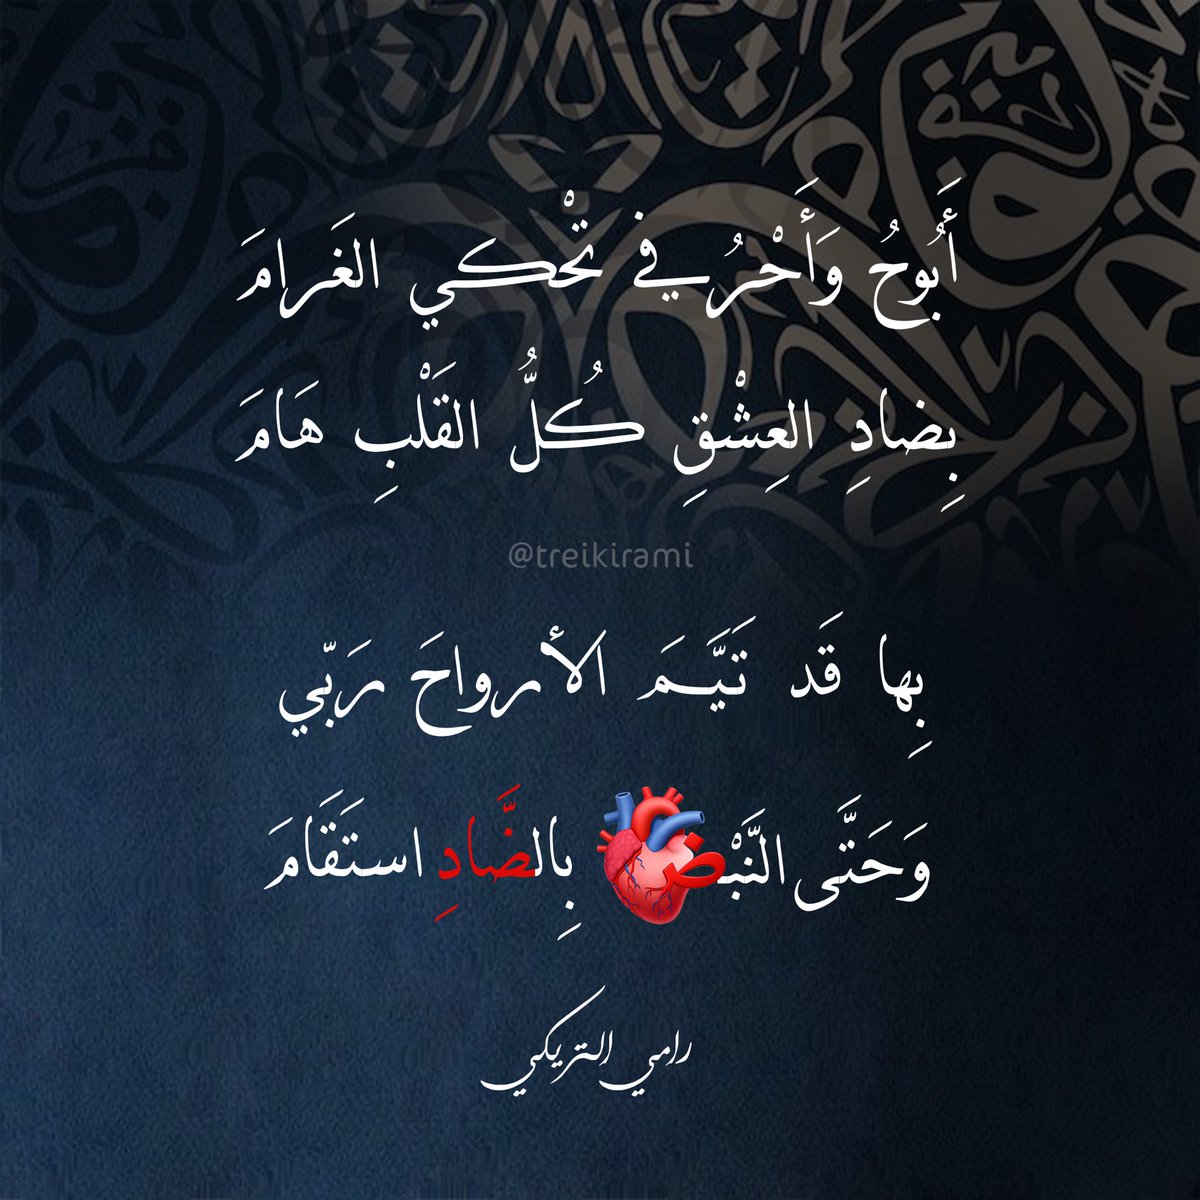 أَبُوحُ وَأَحْرُفي تحْكي الغَرامَ
بِضادِ العِشْقِ كُلُّ القَلْبِ هَامَ
@treikirami
بِها قَد تَيَّـمَ الأرواحَ رَبّي
وَحَتَّى النَّبْض بِالضَّادِ استَقَامَ
رامي التريكي